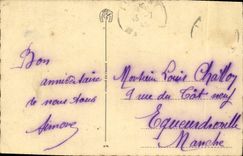 Bon
anniversaire
de nous tous
Monsieur Louis Challoy
9 rue du Tôt neuf
Equeurdreville
Manche